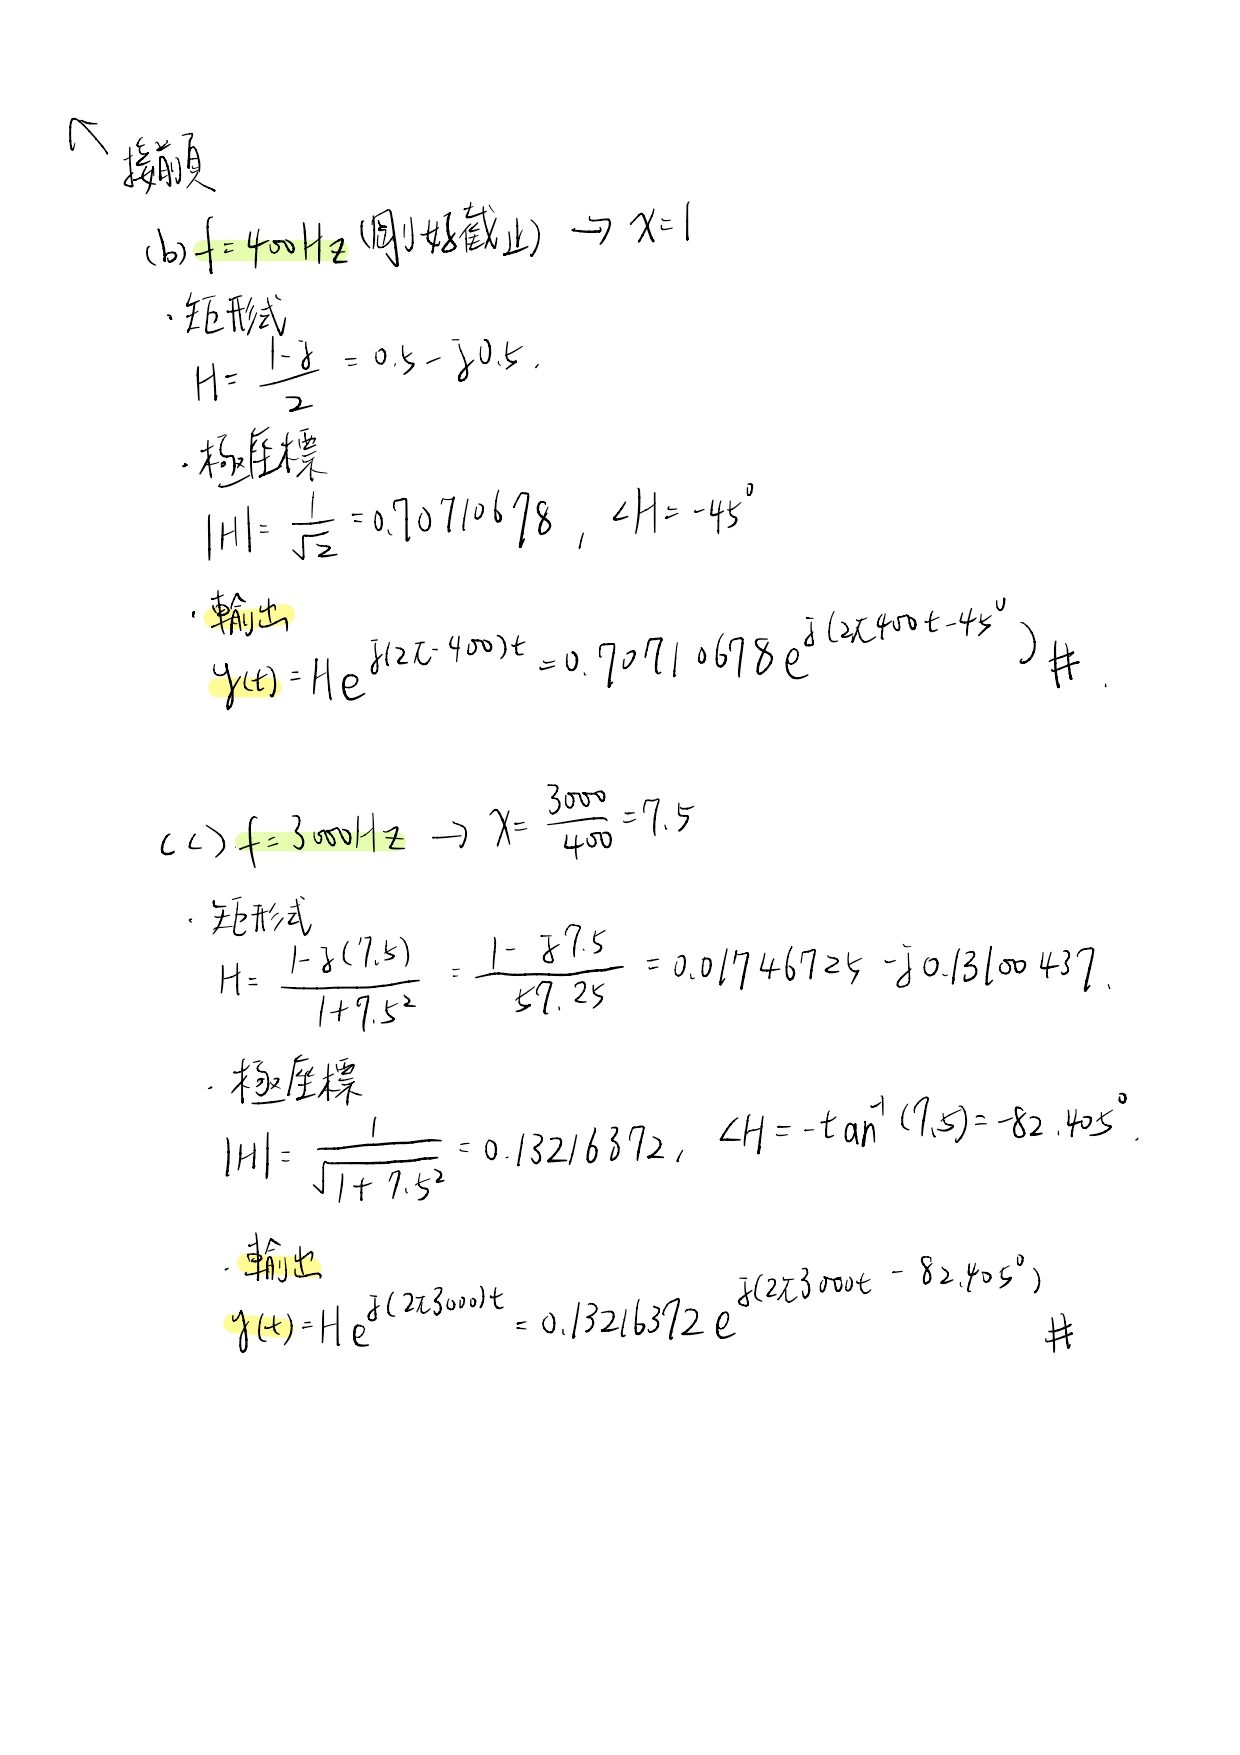 接前頁
(b) f=400Hz (剛好截止) → x=1
· 矩形式
H= \frac{1-j}{2} = 0.5-j0.5.
· 極座標
|H|= \frac{1}{\sqrt{2}} =0.70710678, ∠H=-45°
· 輸出
y(t)=He^{j(2π·400)t} =0.70710678e^{j(2π400t-45°)} #.
(c) f=3000Hz → x= \frac{3000}{400} =7.5
· 矩形式
H= \frac{1-j(7.5)}{1+7.5^2} = \frac{1-j7.5}{57.25} = 0.01746725-j0.13100437.
· 極座標
|H|= \frac{1}{\sqrt{1+7.5^2}} =0.13216372, ∠H=-tan^{-1}(7.5)=-82.405°.
· 輸出
y(t)=He^{j(2π3000)t} =0.13216372e^{j(2π3000t-82.405°)} #